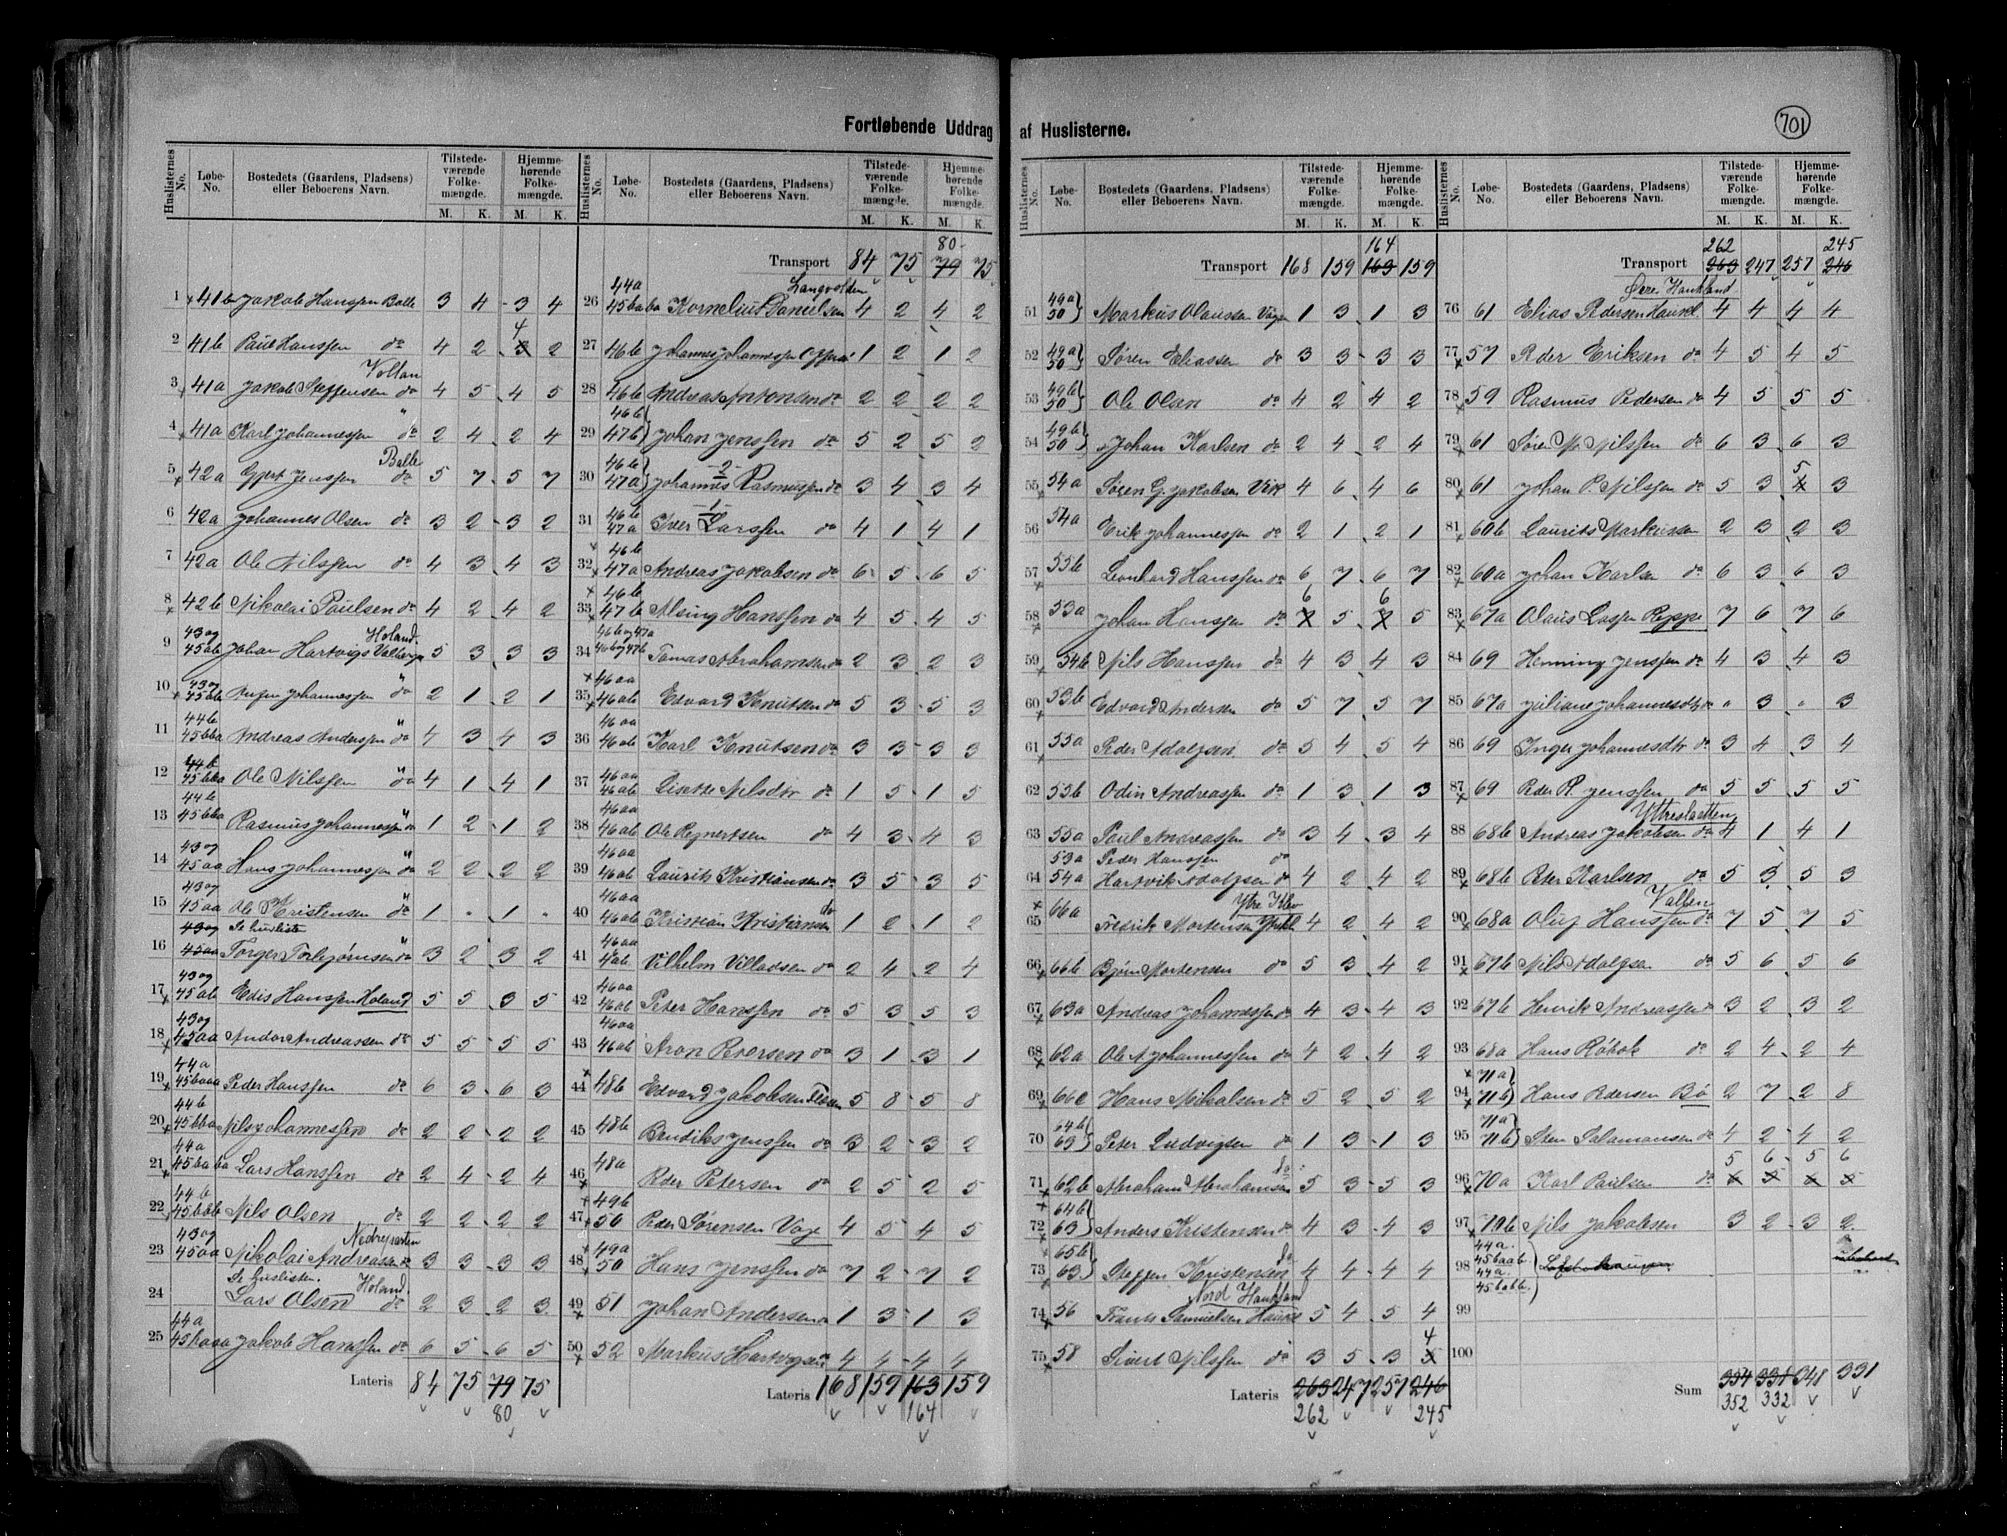 Fortløbende Uddrag af Huslisterne.
701
Huslisternes No. Løbe-No. Bostedets (Gaardens, Pladsens) eller Beboerens Navn. Tilstedeværende Folkemængde. M. K. Hjemmehørende Folkemængde. M. K.
1 41b Jakob Hanssen Balle 3 4 3 4
2 41b Paul Hanssen do 4 2 4 2
Vollan
3 41a Jakob Steffensen do 4 5 4 5
4 41a Karl Johannessen do 2 4 2 4
Balle
5 42a Ejert Jenssen do 5 7 5 7
6 42a Johannes Olsen do 3 2 3 2
7 42a Ole Nilssen do 4 3 4 3
8 42b Nikolai Paulsen do 4 2 4 2
Holand
9 43 og 45ab Johan Hartvigs 5 3 3 3
10 43 og 45bb Johannessen do 2 1 2 1
11 44b 45bba Andreas Anderssen do 4 3 4 3
12 44b 45bba Ole Nilssen do 4 1 4 1
13 44b 45bba Rasmus Johannessen do 1 2 1 2
14 43 og 45aa Hans Johannessen do 2 2 2 2
15 43 og 45aa Ole Kristensen do 1 " 1 "
Se huslisten
16 43 og 45aa Torger Torbjørnsen do 3 2 3 2
17 43 og 45ab Edis Hanssen Holand 5 5 3 5
18 43 og 45aa Andor Andreassen do 5 5 5 5
19 44a 45baaa Peder Hanssen do 6 3 6 3
20 44b 45bba Nils Johannessen do 2 2 2 2
21 44a 45baba Lars Hanssen do 2 4 2 4
22 44b 45babb Nils Olsen do 2 2 2 2
23 43 og 45aa Nikolai Andreassen do 3 3 3 3
Se huslisten. Holand
24 Lars Olsen do 2 3 2 3
25 44a 45baaa Jakob Hanssen do 6 5 6 5
Lateris 84 75 79 75
80
Huslisternes No. Løbe-No. Bostedets (Gaardens, Pladsens) eller Beboerens Navn. Tilstedeværende Folkemængde. M. K. Hjemmehørende Folkemængde. M. K.
80
Transport 84 75 79 75
Langvolden
26 44a 45baba Kornelius Danielsen 4 2 4 2
27 46b Johannes Johannessen 1 2 1 2
28 46b Andreas Antonsen do 2 2 2 2
29 46b 47b Johan Jenssen do 5 2 5 2
-2-
30 46b 47a Johannes Rasmussen do 3 4 3 4
-1-
31 46b 47a Iver Larssen do 4 1 4 1
32 46b 47a Andreas Jakobsen do 6 5 6 5
33 46b 47b Alsing Hanssen do 4 5 4 5
34 46b og 47a 46b og 47b Tomas Abrahamsen do 2 3 2 3
35 46aa 46ab Edvard Knutsen do 5 3 5 3
36 46aa 46ab Karl Knutsen do 3 3 3 3
37 46aa 46ab Lisette Nilsdtr do 1 5 1 5
38 46aa 46ab Ole Regnertsen do 4 3 4 3
39 46aa 46ab Laurits Kristiansen do 3 5 3 5
40 46aa 46ab Kristian Kristiansen do 1 2 1 2
41 46aa 46ab Vilhelm Villadsen do 2 4 2 4
42 46aa 46ab Peter Hanssen do 5 3 5 3
43 46aa 46ab Aron Petersen do 3 1 3 1
44 48b Edvard Jakobsen 5 8 5 8
45 48b Bendiks Jenssen do 3 2 3 2
46 48a Peder Petersen do 2 5 2 5
47 49b 50 Peder Sørensen Vage 4 5 4 5
48 49a 50 Hans Jenssen do 7 2 7 2
49 51 Johan Andersen do 1 3 1 3
50 52 Markus Hartvigsen 4 4 4 4
Lateris 168 159 163 159
164
Huslisternes No. Løbe-No. Bostedets (Gaardens, Pladsens) eller Beboerens Navn. Tilstedeværende Folkemængde. M. K. Hjemmehørende Folkemængde. M. K.
164
Transport 168 159 163 159
51 49a 50 Markus Olaussen Vage 1 3 1 3
52 49a 50 Søren Eliassen do 3 3 3 3
53 49b 50 Ole Olsen do 4 2 4 2
54 49b 50 Johan Karlsen do 2 4 2 4
55 54a Søren G. Jakobsen 4 6 4 6
56 54a Erik Johannessen do 2 1 2 1
57 53b Leonhard Hanssen do 6 7 6 7
6 6
58 53a Johan Hanssen do 7 5 7 5
59 54b Nils Hanssen do 4 3 4 3
60 53b Edvard Andersen do 5 7 5 7
61 55a Peder Adolfsen do 5 4 5 4
62 53b Odin Andreassen do 1 3 1 3
63 55a Paul Andreassen do 3 4 3 4
53a Peder Hanssen do
64 54a Hartvik Adolfsen do 4 2 4 2
65 66a Fredrik Mortensen 4 2 4 2
66 66b Bjørn Mortensen do 5 3 4 2
67 63a Andreas Johannessen do 4 3 4 3
68 62a Ole A Johannessen do 4 2 4 2
69 66c Hans Nikolsen do 5 2 5 2
70 64b 63 Peter Ludvigsen do 1 3 1 3
71 62b Abraham Abrahamsen do 5 3 5 3
72 64b 63 Anders Kristensen do 4 3 4 3
73 65b 63 Steffen Kristensen do 4 4 4 4
Nord Haukland
74 56 Frants Samuelsen 5 4 5 4
4
75 58 Sivert Nilssen do 3 5 3 5
Lateris 263 247 257 246
262 245
Huslisternes No. Løbe-No. Bostedets (Gaardens, Pladsens) eller Beboerens Navn. Tilstedeværende Folkemængde. M. K. Hjemmehørende Folkemængde. M. K.
262 245
Transport 263 247 257 246
Søre Haukland
76 61 Elias Pedersen 4 4 4 4
77 57 Peder Eriksen do 4 5 4 5
78 59 Rasmus Pedersen do 4 5 5 5
79 61 Søren Nilssen do 6 3 6 3
80 61 Johan P. Nilssen do 5 3 5 3
81 60b Laurits Markussen 2 3 2 3
82 60a Johan Karlsen do 6 3 6 3
83 67a Olaus Lassen Reppe 7 6 7 6
84 69 Henning Jenssen do 4 3 4 3
85 67a Juliane Johannesdtr do " 3 " 3
86 69 Inger Johannesdtr do 3 4 3 4
87 69 Peder R. Jenssen do 5 5 5 5
88 68b Andreas Jakobsen do 4 1 4 1
89 68b Peter Karlsen do 5 3 5 3
Vallen
90 68a Oluf Hanssen do 7 5 7 5
91 67b Nils Adolfsen do 5 6 5 6
92 67b Henrik Andreassen do 3 2 3 2
93 68a Hans Robok do 2 4 2 4
94 71a 71b Hans Pedersen Bø 2 7 2 8
95 71a 71b Sten Salamonsen do 4 2 4 2
5 6 5 6
96 70a Karl Paulsen do 6 5 6 5
97 70b Nils Jakobsen 3 2 3 2
98 44a. 45baab. 44a. 45babb.
99
100
Sum 354 331 348 331
352 332